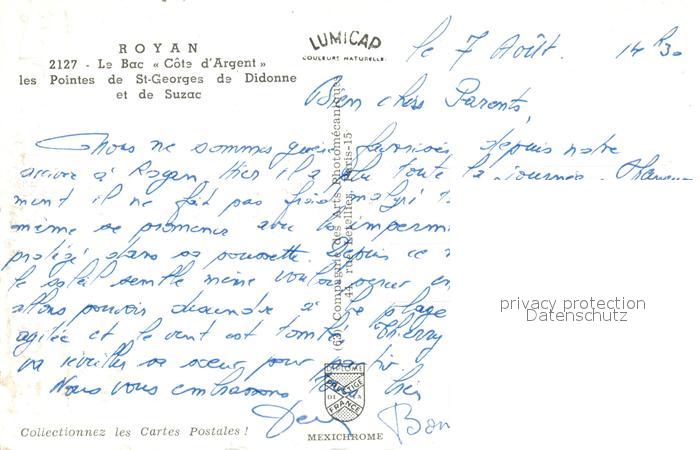 ROYAN
2127 - Le Bac « Côte d'Argent »
les Pointes de St-Georges de Didonne
et de Suzac
LUMICAP
COULEURS NATURELLES
le 7 Août. 14 h 30
Bien chers Parents,
Nous ne sommes guère favorisés depuis notre
arrivée à Royan. Hier il a plu toute la journée.
ment il ne fait pas froid malgré
même se promener avec
protégé dans sa poussette. Depuis ce
le soleil semble même vouloir
allons pouvoir descendre à la plage
agitée et le vent est tombé. Thierry
va réveiller sa sœur pour partir.
Nous vous embrassons tous bien
Bon
(63) Compagnie des Arts Photomécaniques
44, rue Letellier, Paris-15
privacy protection
Datenschutz
DIPLOME
PRESTIGE
DE LA
FRANCE
MEXICHROME
Collectionnez les Cartes Postales !